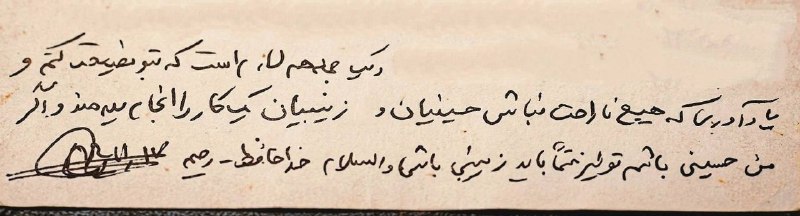 و یک جمله هم لازم است که بتو نصیحت کنم و
یادآوری که هیچ ناراحت نباش حسینیان و زینبیان یک کار را انجام میدهند و اگر
من حسینی باشم تو نیز حتماً باید زینبی باشی والسلام خداحافظ - رحیم